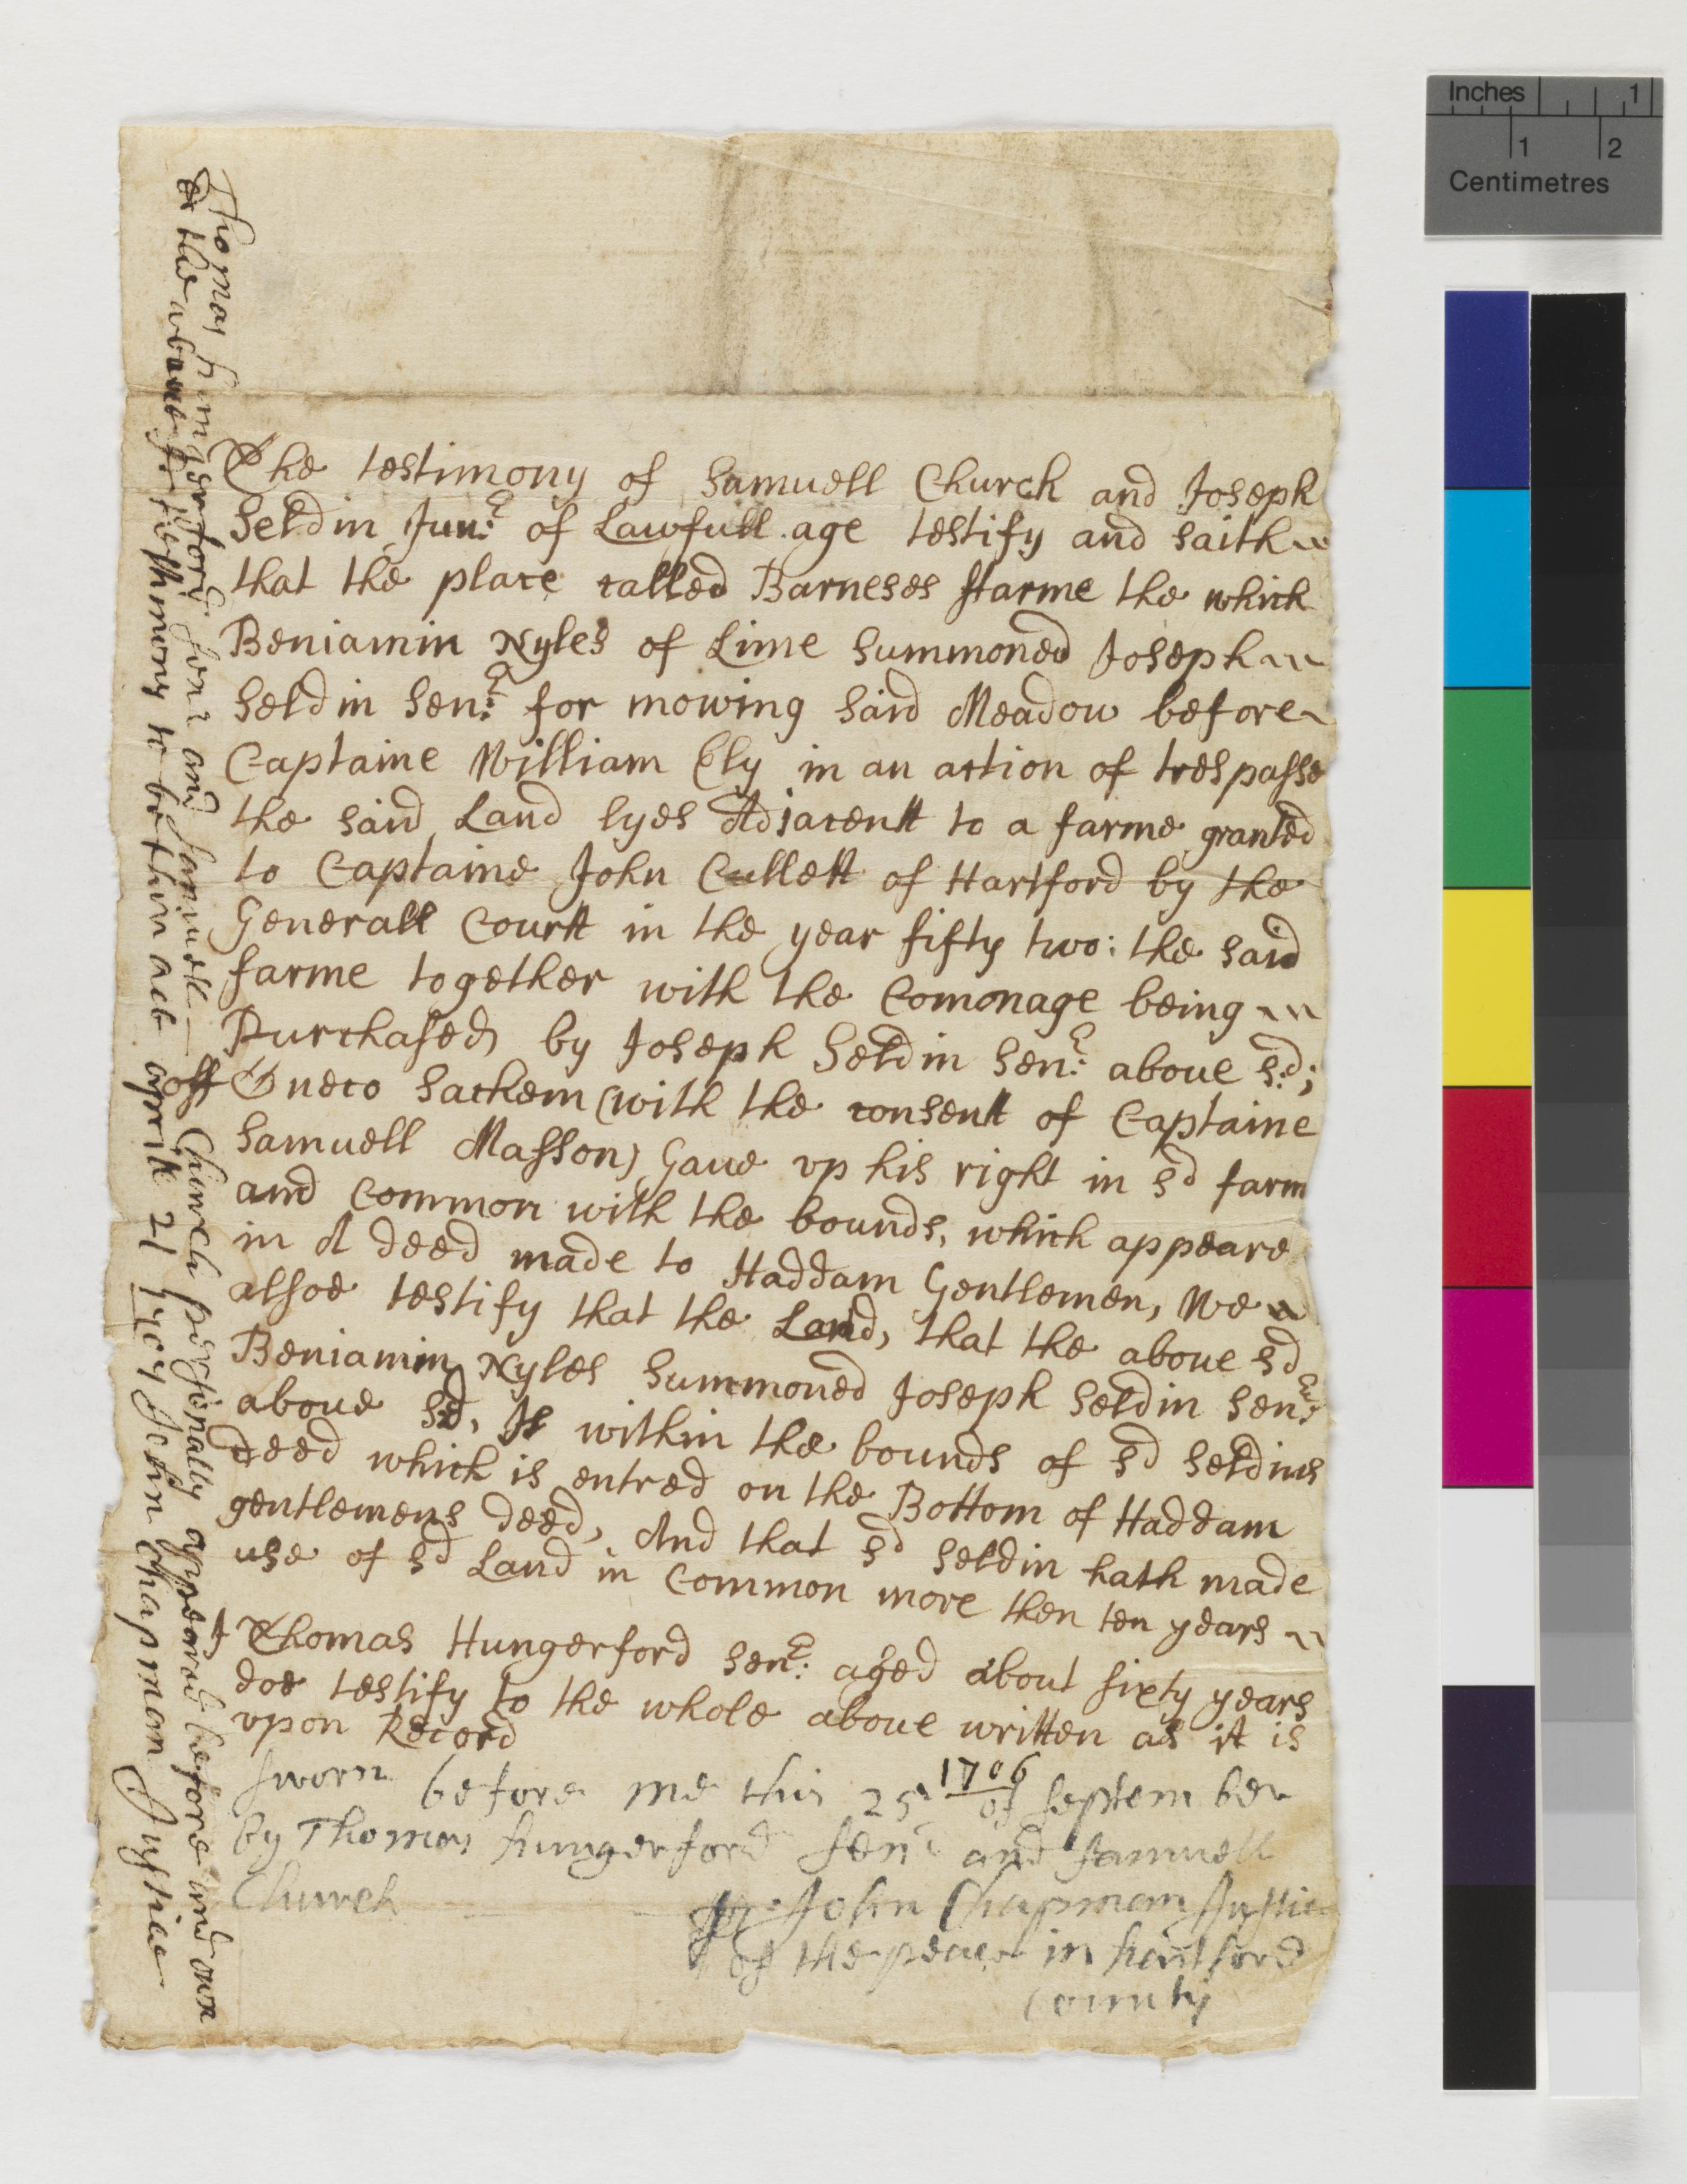 The testimony of Samuell Church and Joseph
Seldin Junr: of Lawfull age testify and saith
that the place called Barneses ffarme the which
Beniamin Nyles of Lime Summoned Joseph
Seldin Senr: for mowing said Meadow before
Captaine William Ely in an action of trespasse
the said Land lyes Adjacentt to a farme granted
to Captaine John Cullett of Hartford by the
Generall Courtt in the year fifty two: the said
farme together with the Comonage being
Purchased by Joseph Seldin Senr: aboue sd;
off Oneco Sachem (with the consentt of Captaine
Samuell Masson) Gaue vp his right in sd farm
and Common with the bounds, which appeare
in A deed made to Haddam Gentlemen, We
allsoe testify that the Land, that the aboue sd
Beniamin Nyles Summoned Joseph Seldin Senr
aboue sd, Is within the bounds of sd Seldins
deed which is entred on the Bottom of Haddam
gentlemens deed, And that sd Seldin hath made
use of sd Land in Common more then ten years
I Thomas Hungerford Senr: aged about sixty years
doe testify to the whole aboue written as it is
vpon Record
Sworn before me this 25 of September 1706
by Thomas hungerford Senr and Samuell
Church
John Chapman Justice
of the peace in hartford
County
Thomas hungerford senr and Samuell Church personally appeared before and own
the aboue testimony to be their act aprill 21 1707 John Chapman Justice
Inches 1
1 2
Centimetres